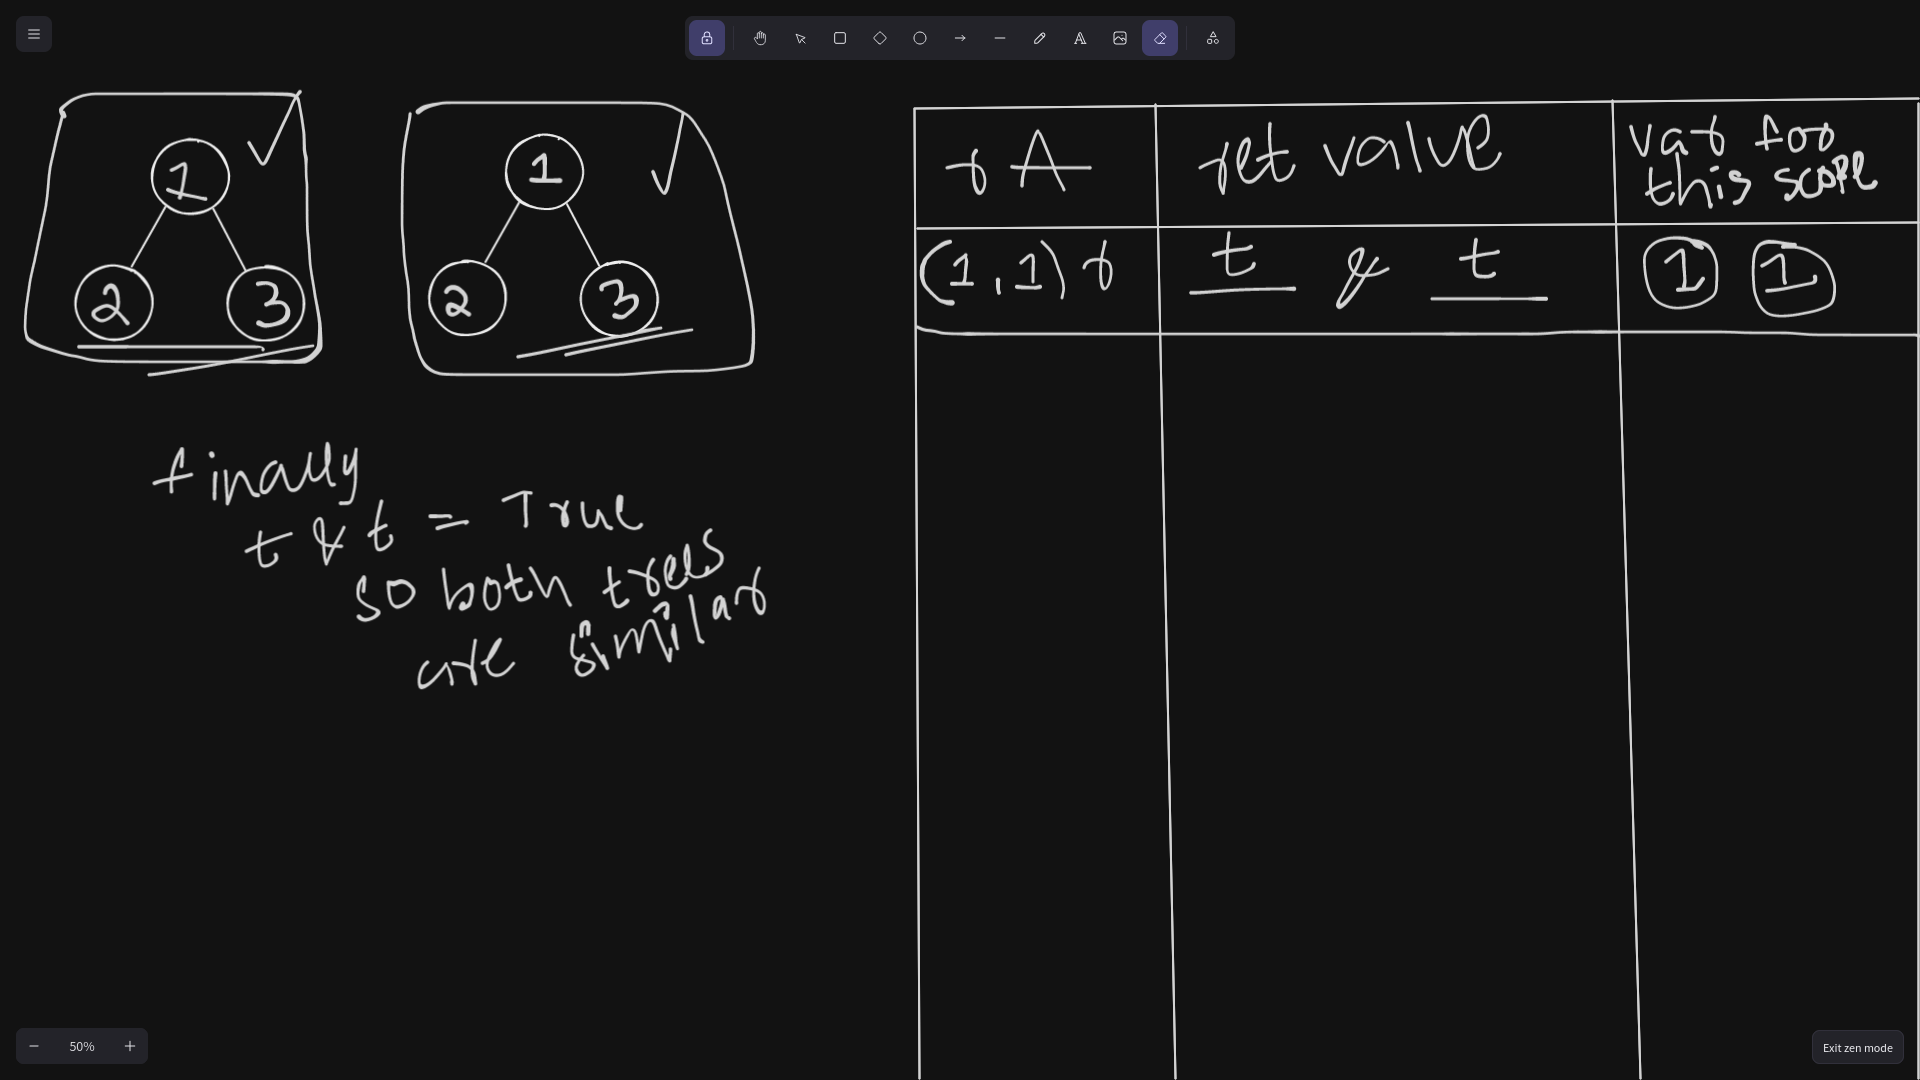 1
2 3
1
2 3
finally
t & t = True
so both trees
are similar
rA ret value var for
this scope
(1,1) r t & t 1 1
50%
Exit zen mode